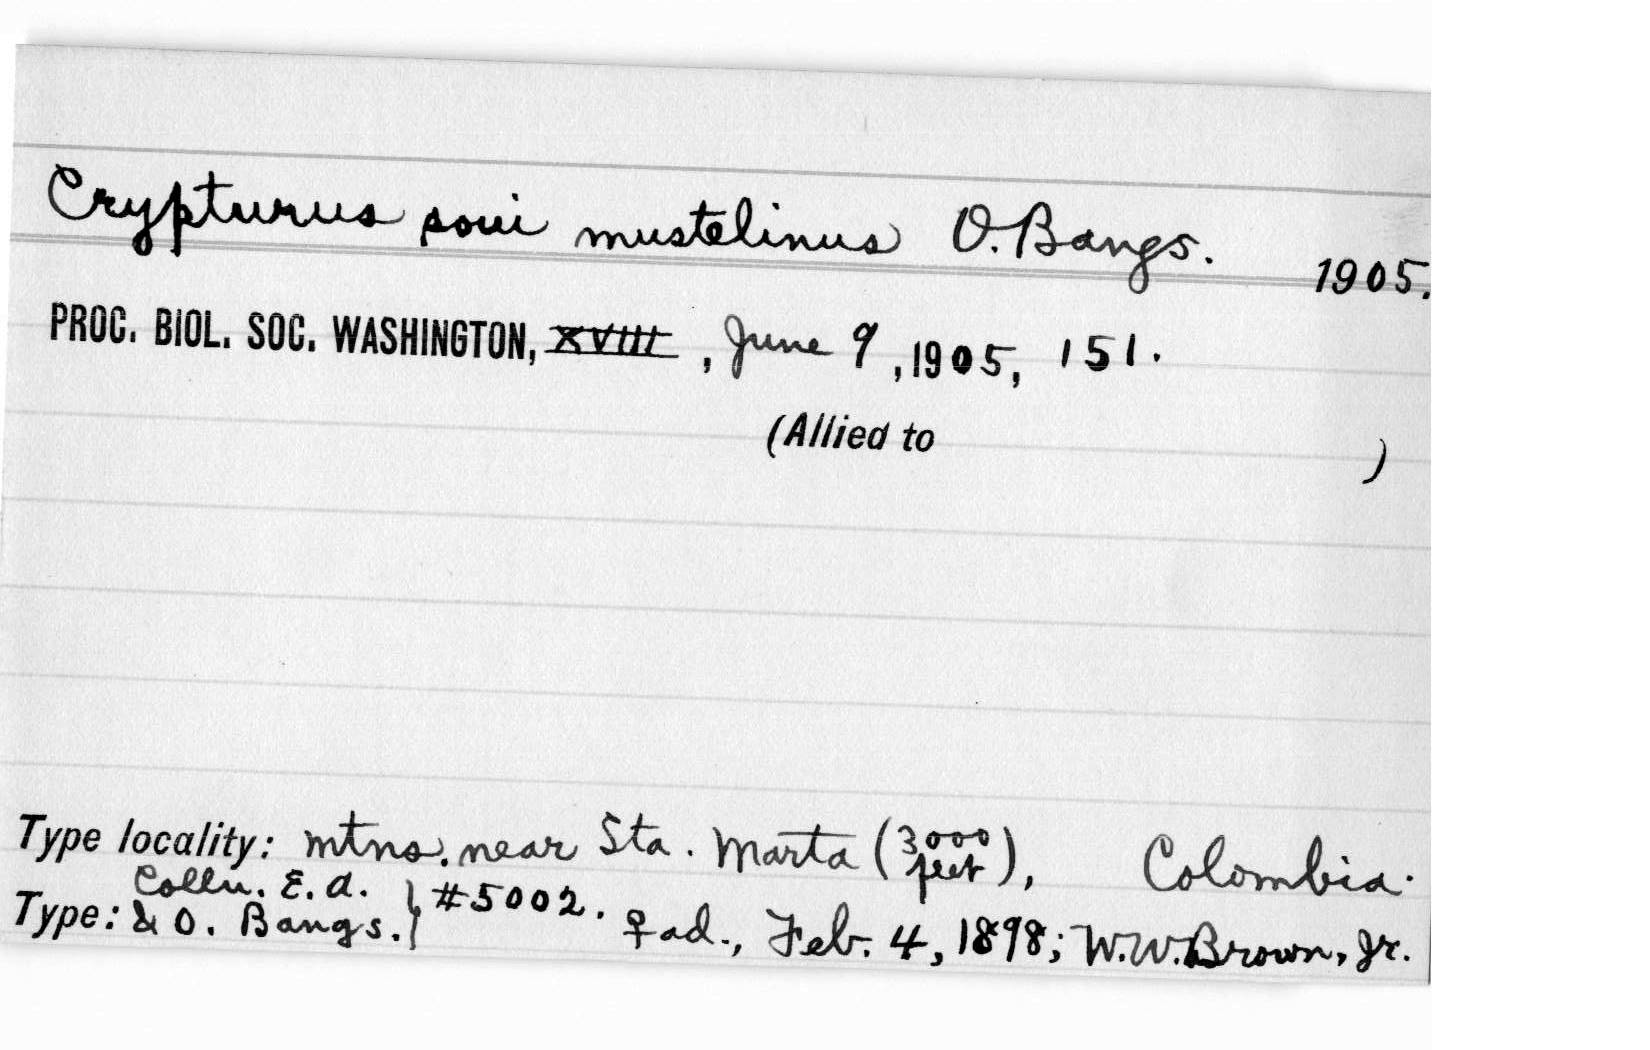 Crypturus soui mustelinus O. Bangs. 1905.
PROC. BIOL. SOC. WASHINGTON, XVIII, June 9, 1905, 151.
(Allied to )
Type locality: mtns. near Sta. Marta (3000 feet), Colombia.
Type: Colln. E. A. & O. Bangs. } #5002. ♀ ad., Feb. 4, 1898; W. W. Brown, Jr.